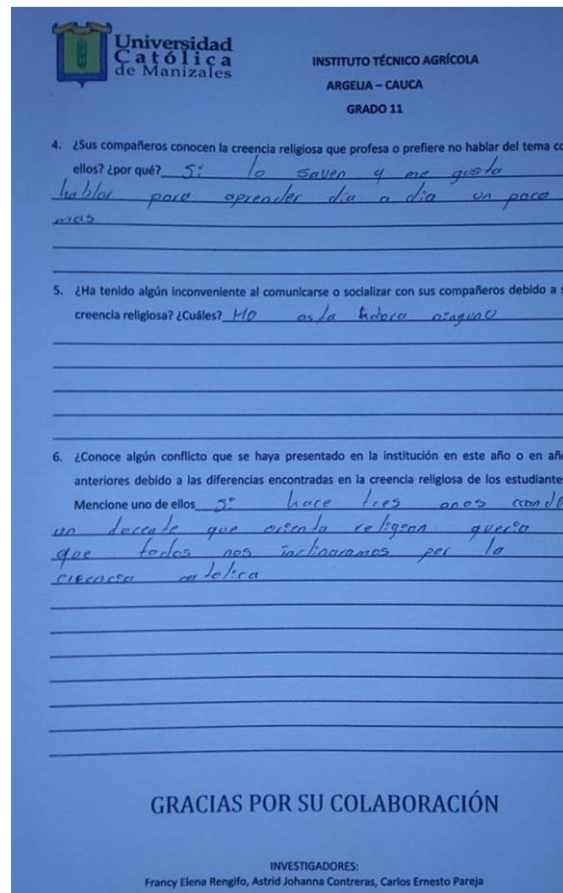 Universidad
Católica
de Manizales
INSTITUTO TÉCNICO AGRÍCOLA
ARGELIA – CAUCA
GRADO 11
4. ¿Sus compañeros conocen la creencia religiosa que profesa o prefiere no hablar del tema co
ellos? ¿por qué? Si lo saven y me gusta
hablar para aprender dia a dia un poco
mas
5. ¿Ha tenido algún inconveniente al comunicarse o socializar con sus compañeros debido a s
creencia religiosa? ¿Cuáles? No asta ninguno
6. ¿Conoce algún conflicto que se haya presentado en la institución en este año o en año
anteriores debido a las diferencias encontradas en la creencia religiosa de los estudiante
Mencione uno de ellos Si hace tres anos cuando
un docente que orienta religeon queria
que todos nos inclinaramos por la
creencia catolica
GRACIAS POR SU COLABORACIÓN
INVESTIGADORES:
Francy Elena Rengifo, Astrid Johanna Contreras, Carlos Ernesto Pareja